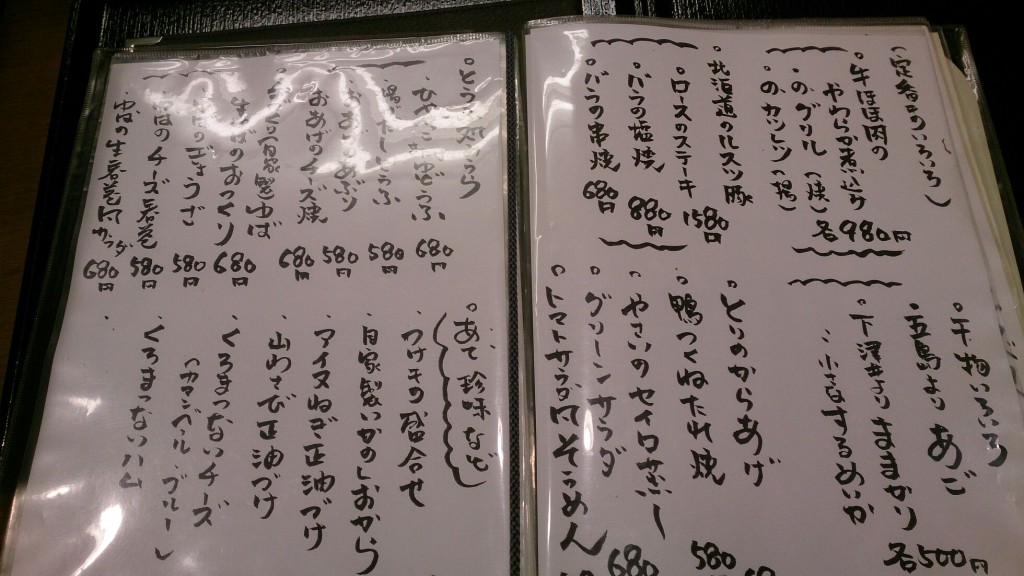 (定番のいろいろ)
牛ほほ肉の
やわらか煮込み
のグリル(焼)
のカツレツ(揚)
各980円
北海道のルスツ豚
ロースのステーキ 1580円
バラの塩焼 880円
バラの串焼 680円
干物いろいろ
五島より あご
下津井よりままかり
小さなするめいか
各500円
とりのからあげ
鴨つくねたれ焼 580円
やさいのセイロ蒸し
グリーンサラダ 680
トマトサラダ風そうめん
680円
580円
580円
おあげのチーズ焼 680円
680円
580円
ゆばのチーズ春巻 580円
ゆばの生春巻風サラダ 680円
あて珍味など
つけもの盛合せ
自家製いかのしおから
アイヌねぎ正油づけ
山わさび正油づけ
くろまつないチーズ
(カマンベール、ブルー)
くろまつないハム